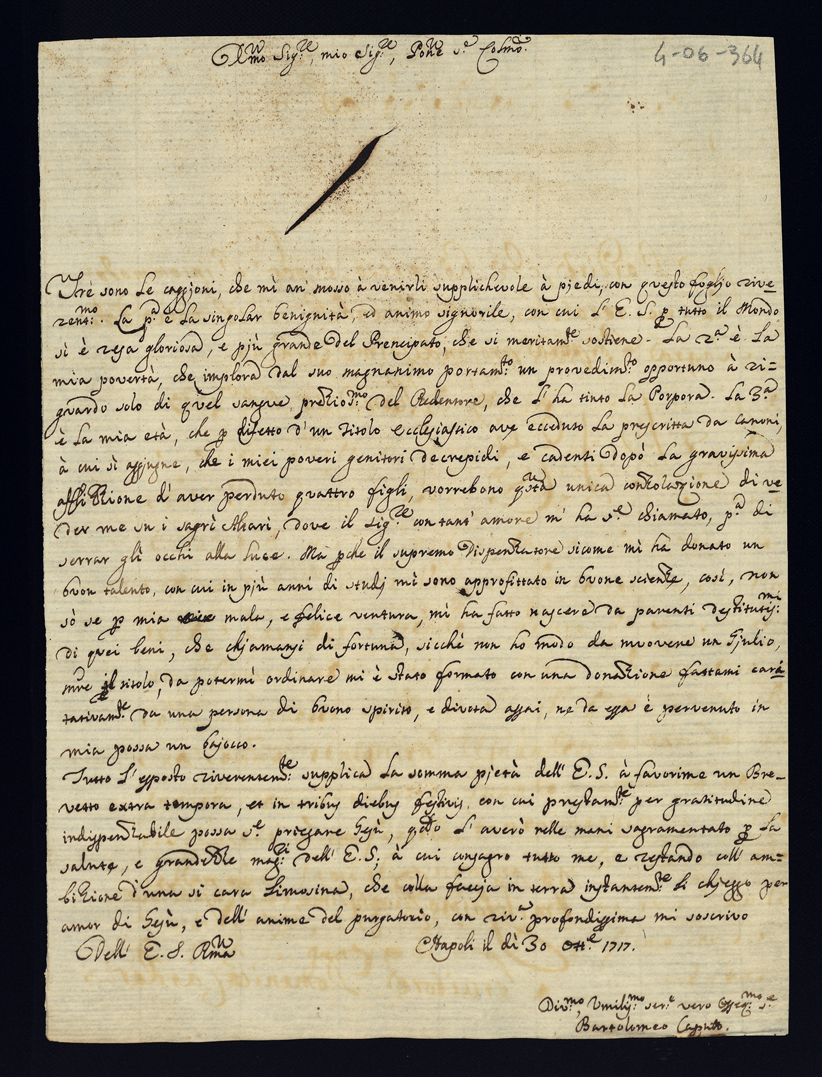 4-06-364
Sig.re, mio Sig.re, Pōne Colmo.
Tré sono le caggioni, che mì an' mosso à venirli supplichevole à piedi, con questo foglio rive=
rent.mo. La p.a è la singolar benignità, ed animo signorile, con cui l' E. S. p tutto il Mondo
sì è resa gloriosa, e più grande del Prencipato, che si meritam.te sostiene. La 2.a è la
mia povertà, che implora dal suo magnanimo portam.to un provedim.to opportuno à ri=
guardo solo di quel sangue prezios.mo del Redentore, che l' ha tinto la Porpora. La 3.a
è la mia età, che p difetto d' un Titolo Ecclesiastico ave ecceduto la prescritta da canoni,
à cui sì aggiugne, che i miei poveri genitori decrepidi, e cadenti dopò la gravissima
affizzione d' aver perduto quattro figli, vorrebono q.sta unica consolazione di ve=
der me sù i sagri Altari, dove il Sig.re con tant' amore m' ha chiamato, p.a di
serrar gli occhi alla luce. Ma pche il supremo Dispenzatore sicome mì ha donato un
buon talento, con cui in più anni di studj mì sono approfittato in buone scienze, così, non
sò se p mia mala, e felice ventura, mì ha fatto nascere da parenti destitutiss.mi
di quei beni, che chiamansi di fortuna, sicchè non ho modo da muovere un Giulio,
il titolo, da potermi ordinare mi è stato formato con una donazione fattami cari=
tativam.te da una persona di buono spirito, e divota assai, ne da essa è pervenuto in
mia possa un bajocco.
Tutto l' esposto riverentem.te supplica la somma pietà dell' E. S. à favorirme un Bre=
vetto extra tempora, et in tribus diebus festivis, con cui prestam.te per gratitudine
indispenzabile possa pregare Gesù, q.do l' averò nelle mani sagramentato p la
salute, e grandezze mag.ri dell' E. S; à cui consagro tutto me, e restando coll' am=
bizione d' una sì cara limosina, che colla faccia in terra instantem.te li chieggo per
amor di Gesù, e dell' anime del purgatorio, con riv.a profondissima mi soscrivo
Dell' E. S. Rma
Napoli il dì 30 Ott.e 1717.
Div.mo, Umiliss.mo ser.e vero
Bartolomeo Caputo.